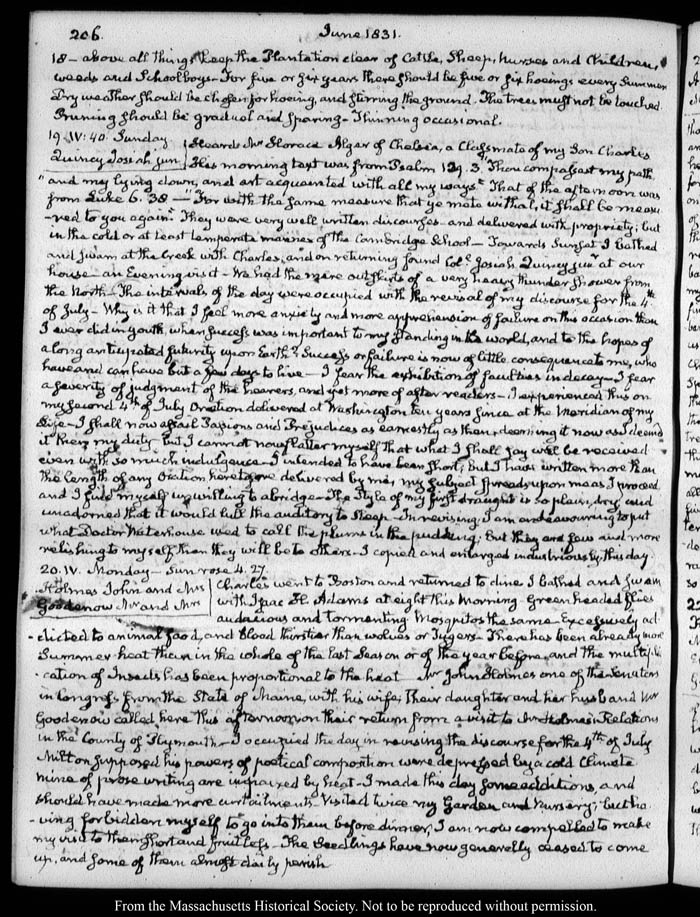 206. June 1831.
18 – above all things keep the Plantation clear of Cattle, Sheep, Horses and Children,
weeds and Schoolboys – For five or six years there should be five or six hoeings every Summer
Dry weather should be chosen for hoeing, and stirring the ground. The trees must not be touched.
Pruning should be gradual and sparing – Thinning occasional.
19. IV: 40. Sunday
Quincy Josiah Jun
Heard Mr Horace Alger of Chelsea, a Classmate of my Son Charles
His morning text was from Psalm 139. 3. "Thou compassest my path,
"and my lying down, and art acquainted with all my ways" That of the afternoon was
from Luke 6. 38 — For with the same measure that ye mete withal, it shall be measu
-red to you again". They were very well written discourses – and delivered with propriety; but
in the cold or at least temperate manner of the Cambridge School – Towards Sunset I bathed
and swam at the Creek with Charles, and on returning found Col.l Josiah Quincy junr at our
house – an Evening visit – We had the mere outskirts of a very heavy thunder shower from
the North – The intervals of the day were occupied with the revisal of my discourse for the 4th
of July – Why is it that I feel more anxiety and more apprehension of failure on this occasion than
I ever did in youth, when success was important to my standing in the world, and to the hopes of
a long anticipated futurity upon Earth? Success or failure is now of little consequence to me, who
have and can have but a few days to live – I fear the exhibition of faculties in decay – I fear
a severity of judgment of the hearers, and yet more of after readers – I experienced this on
my second 4th of July Oration delivered at Washington ten years since at the Meridian of my
life – I shall now assail Passions and Prejudices as earnestly as then, deeming it now as I deem'd
it then my duty – but I cannot now flatter myself that what I shall say will be received
even with so much indulgence – I intended to have been short, but I have written more than
the length of any Oration heretofore delivered by me; my subject spreads upon me as I proceed
and I find myself unwilling to abridge – The Style of my first draught is so plain, dry and
unadorned that it would lull the auditory to sleep – In revising, I am endeavouring to put
what Doctor Waterhouse used to call the plums in the pudding; but they are few and more
relishing to myself than they will be to others – I copied and enlarged industriously this day.
20. IV. Monday – Sun rose 4. 27.
Holmes John and Mrs
Goodenow Mr and Mrs
Charles went to Boston and returned to dine. I bathed and swam
with Isaac H. Adams at eight this Morning – Green headed flies
audacious and tormenting Mosquitos the same – Excessively ad
-dicted to animal food, and blood thirstier than wolves or Tygers – There has been already more
Summer heat than in the whole of the last Season or of the year before, and the multipli
-cation of Insects has been proportional to the heat – Mr John Holmes one of the Senators
in Congress from the State of Maine, with his wife, Their daughter and her husband Mr
Goodenow called here this afternoon on their return from a visit to Mr Holmes's Relations
in the County of Plymouth – I occupied the day in revising the discourse for the 4th of July
Milton supposed his powers of poetical composition were depressed by a cold Climate
mine of prose writing are impaired by heat – I made this day some additions, and
should have made more curtailments. Visited twice my Garden and Nursery; but ha
-ving forbidden myself to go into them before dinner, I am now compelled to make
my visit to them short and fruitless – The Seedlings have now generally ceased to come
up, and some of them almost daily perish
From the Massachusetts Historical Society. Not to be reproduced without permission.